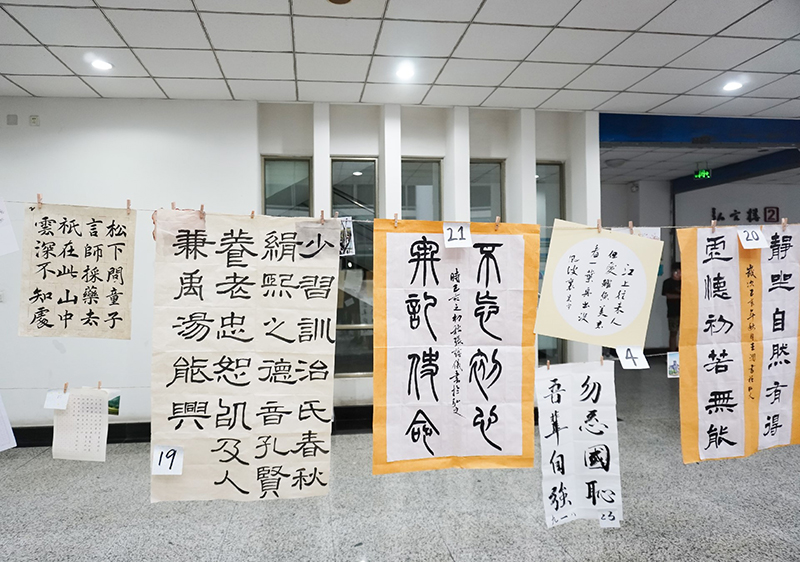 松下問童子
言師採藥去
祇在此山中
雲深不知處
少習訓治氏春秋
緝熙之德音孔賢
養老忠恕凱及人
兼禹湯能興
19
21
不忘初心
牢記使命
江上往來人
但愛鱸魚美君
看一葉舟出沒
風波裏
4
勿忘國恥
吾輩自強
九一八
23
20
靜坐自然有得
虛懷初若無能
2